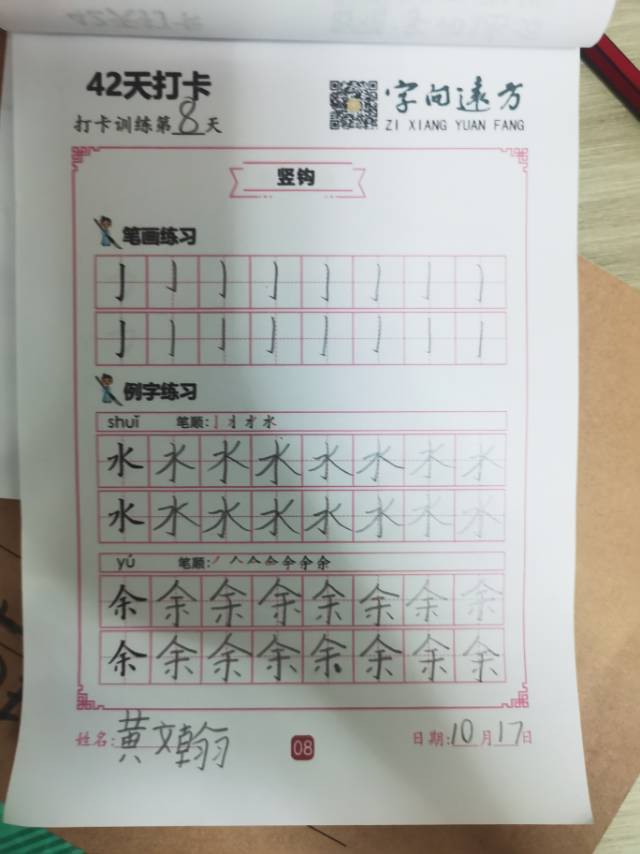 42天打卡
打卡训练第8天
字向远方
ZI XIANG YUAN FANG
竖钩
笔画练习
亅亅亅亅亅亅亅亅
亅亅亅亅亅亅亅亅
例字练习
shuǐ 笔顺:
水水水水水水水水
水水水水水水水水
yú 笔顺:
余余余余余余余余
余余余余余余余余
姓名:黄文翰
08
日期:10月17日